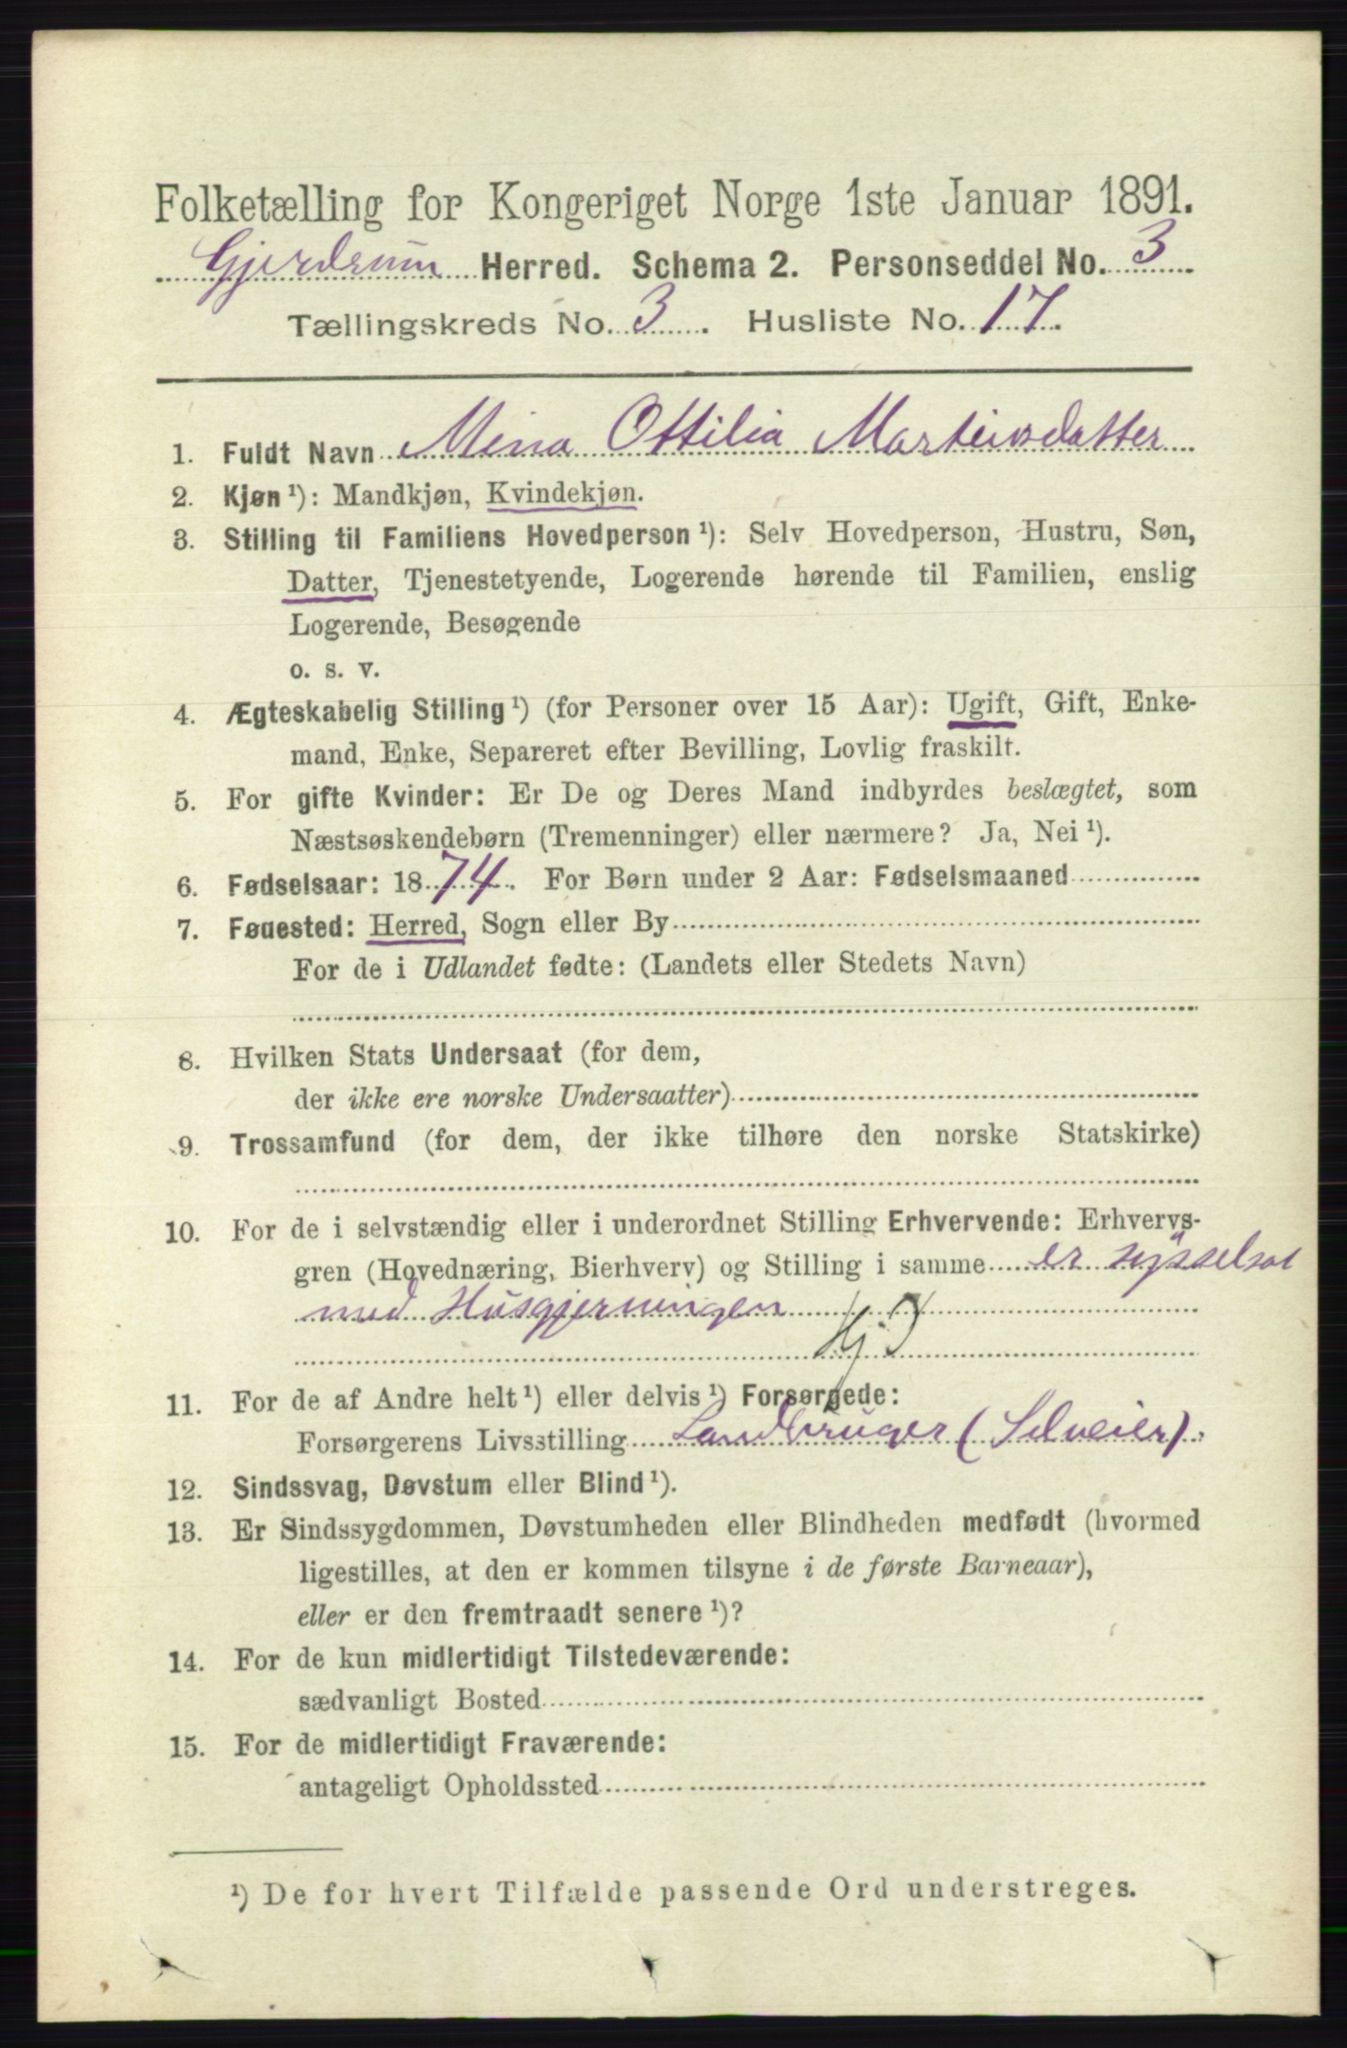 Folketælling for Kongeriget Norge 1ste Januar 1891.
Gjerdrum Herred. Schema 2. Personseddel No. 3
Tællingskreds No. 3. Husliste No. 17.
1. Fuldt Navn Mina Ottilia Martinsdatter
2. Kjøn ¹): Mandkjøn, Kvindekjøn.
3. Stilling til Familiens Hovedperson ¹): Selv Hovedperson, Hustru, Søn,
Datter, Tjenestetyende, Logerende hørende til Familien, enslig
Logerende, Besøgende
o. s. v.
4. Ægteskabelig Stilling ¹) (for Personer over 15 Aar): Ugift, Gift, Enke-
mand, Enke, Separeret efter Bevilling, Lovlig fraskilt.
5. For gifte Kvinder: Er De og Deres Mand indbyrdes beslægtet, som
Næstsøskendebørn (Tremenninger) eller nærmere? Ja, Nei ¹).
6. Fødselsaar: 1874. For Børn under 2 Aar: Fødselsmaaned
7. Føuested: Herred, Sogn eller By
For de i Udlandet fødte: (Landets eller Stedets Navn)
8. Hvilken Stats Undersaat (for dem,
der ikke ere norske Undersaatter)
9. Trossamfund (for dem, der ikke tilhøre den norske Statskirke)
10. For de i selvstændig eller i underordnet Stilling Erhvervende: Erhvervs-
gren (Hovednæring, Bierhverv) og Stilling i samme er sysselsat
med Husgjerningen
11. For de af Andre helt ¹) eller delvis ¹) Forsørgede:
Forsørgerens Livsstilling Landbruger (Selveier).
12. Sindssvag, Døvstum eller Blind ¹).
13. Er Sindssygdommen, Døvstumheden eller Blindheden medfødt (hvormed
ligestilles, at den er kommen tilsyne i de første Barneaar),
eller er den fremtraadt senere ¹)?
14. For de kun midlertidigt Tilstedeværende:
sædvanligt Bosted
15. For de midlertidigt Fraværende:
antageligt Opholdssted
¹) De for hvert Tilfælde passende Ord understreges.